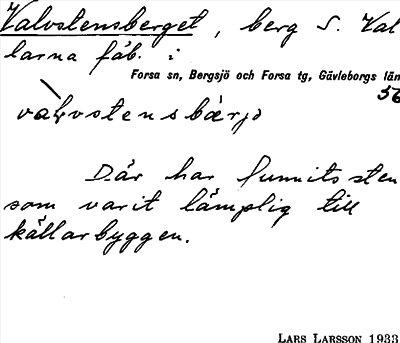 Valvstensberget, berg S. Val
larna fäb. i
Forsa sn, Bergsjö och Forsa tg, Gävleborgs län
56
valvstensbärjə
Där har funnits sten
som varit lämplig till
källarbyggen.
LARS LARSSON 1933